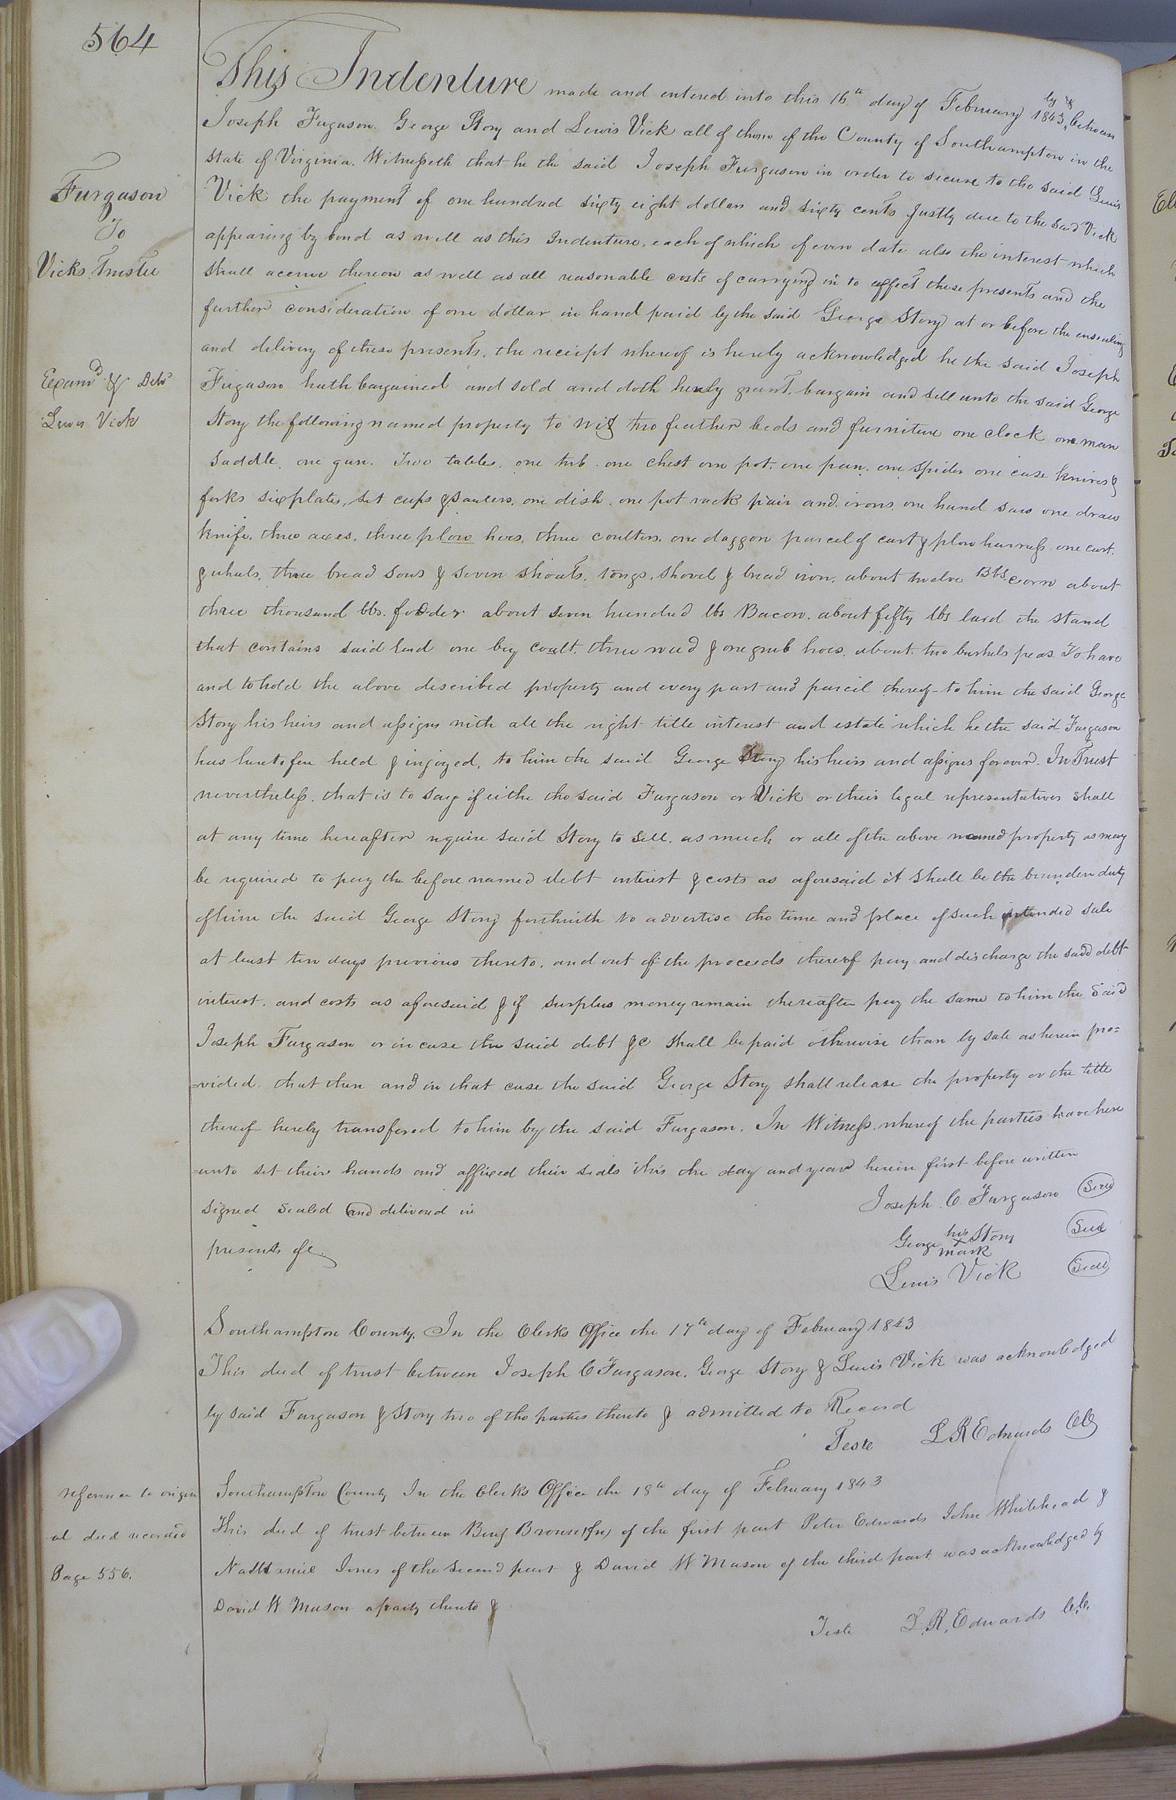 564
This Indenture made and entered into this 16th day of February 1843, by & between
Joseph Fugason. George Story and Lewis Vick all of them of the County of Southampton in the
State of Virginia. Witnesseth that he the said Joseph Furgason in order to secure to the said Lewis
Vick the payment of one hundred sixty eight dollars and sixty cents justly due to the said Vick
appearing by bond as well as this Indenture, each of which of even date also the interest which
shall accrue thereon as well as all reasonable costs of carrying in to effect these presents and the
further consideration of one dollar in hand paid by the said George Story at or before the ensealing
and delivery of these presents, the receipt whereof is hereby acknowledged he the said Joseph
Fugason hath bargained and sold and doth hereby grant, bargain and sell unto the said George
Story the following named property to wit two feather beds and furniture one clock one man
Saddle, one gun. Two tables, one tub. one chest one pot, one pan, one spider one case knives &
forks six plates, set cups & saucers, one dish, one pot rack pair and irons, one hand saw one draw
knife, three axes, three plow hoes, three coulters, one daggon parcel of cart & plow harness one cart
& wheels, three bread sows & seven shoats, tongs, shovel & bread iron, about twelve Bbls corn about
three thousand lbs. fodder about seven hundred lbs Bacon, about fifty lbs lard the stand
that contains said lard one bay coalt, three weed & one grub hoes, about two bushels peas To have
and to hold the above described property and every part and parcel thereof to him the said George
Story his heirs and assigns with all the right title interest and estate which he the said Furgason
has heretofore held & injoyed, to him the said George Story his heirs and assigns forever. In Trust
nevertheless, that is to say if either the said Furgason or Vick or their legal representatives shall
at any time hereafter require said Story to sell as much or all of the above named property as may
be required to pay the before named debt interest & costs as aforesaid it shall be the bounden duty
of him the said George Story forthwith to advertise the time and place of such intended sale
at least ten days previous thereto, and out of the proceeds thereof pay and discharge the said debt
interest, and costs as aforesaid & if surplus money remain thereafter pay the same to him the said
Joseph Furgason or in case the said debt &c shall be paid otherwise than by sale as herein pro=
vided that then and in that case the said George Story shall release the property or the title
thereof hereby transfered to him by the said Furgason. In Witness whereof the parties have here
unto set their hands and affixed their seals this the day and year herein first before written
Signed Sealed and delivered in
presents of
Joseph C Furgason Seal
George his Story Seal
X
mark
Lewis Vick Seal
Southampton County, In the Clerks Office the 17th day of February 1843
This deed of trust between Joseph C Furgason, George Story & Lewis Vick was acknowledged
by said Furgason & Story two of the parties thereto & admitted to Record
Teste L R Edwards CC
Southampton County In the Clerks Office the 18th day of February 1843
This deed of trust between Benj Browne of the first part Peter Edwards John Whitehead &
Nathaniel Jones of the second part & David W Mason of the third part was acknowledged by
David W Mason a party thereto &
Teste L. R. Edwards C.C.
Furgason
To
Vicks Trustee
Examd & Deld
Lewis Vick
reference to origin
al deed recorded
Page 556.